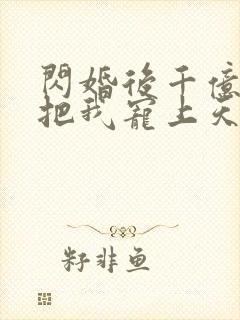 閃婚後千億
把我寵上天
籽非鱼